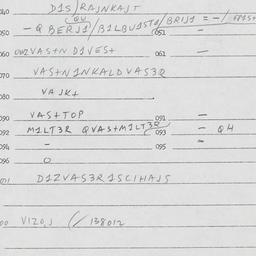 040 D1S/RAJNKAJT
QU
050 -Q BERJ1/B1LBU1ST1/BRIJ1 = -/
051 -
060 VAS+N D1VES+ 061 -
070 VAS+N1NKALDVAS3Q
080 VAJK1
090 VAS+TOP 091 -
092 M1LT3R QVAS+M1LT3R 093 - Q4
094 - 095 -
096 O
D1ZVAS3R1SCIHAJS
00 VIZOJ (/ 138012